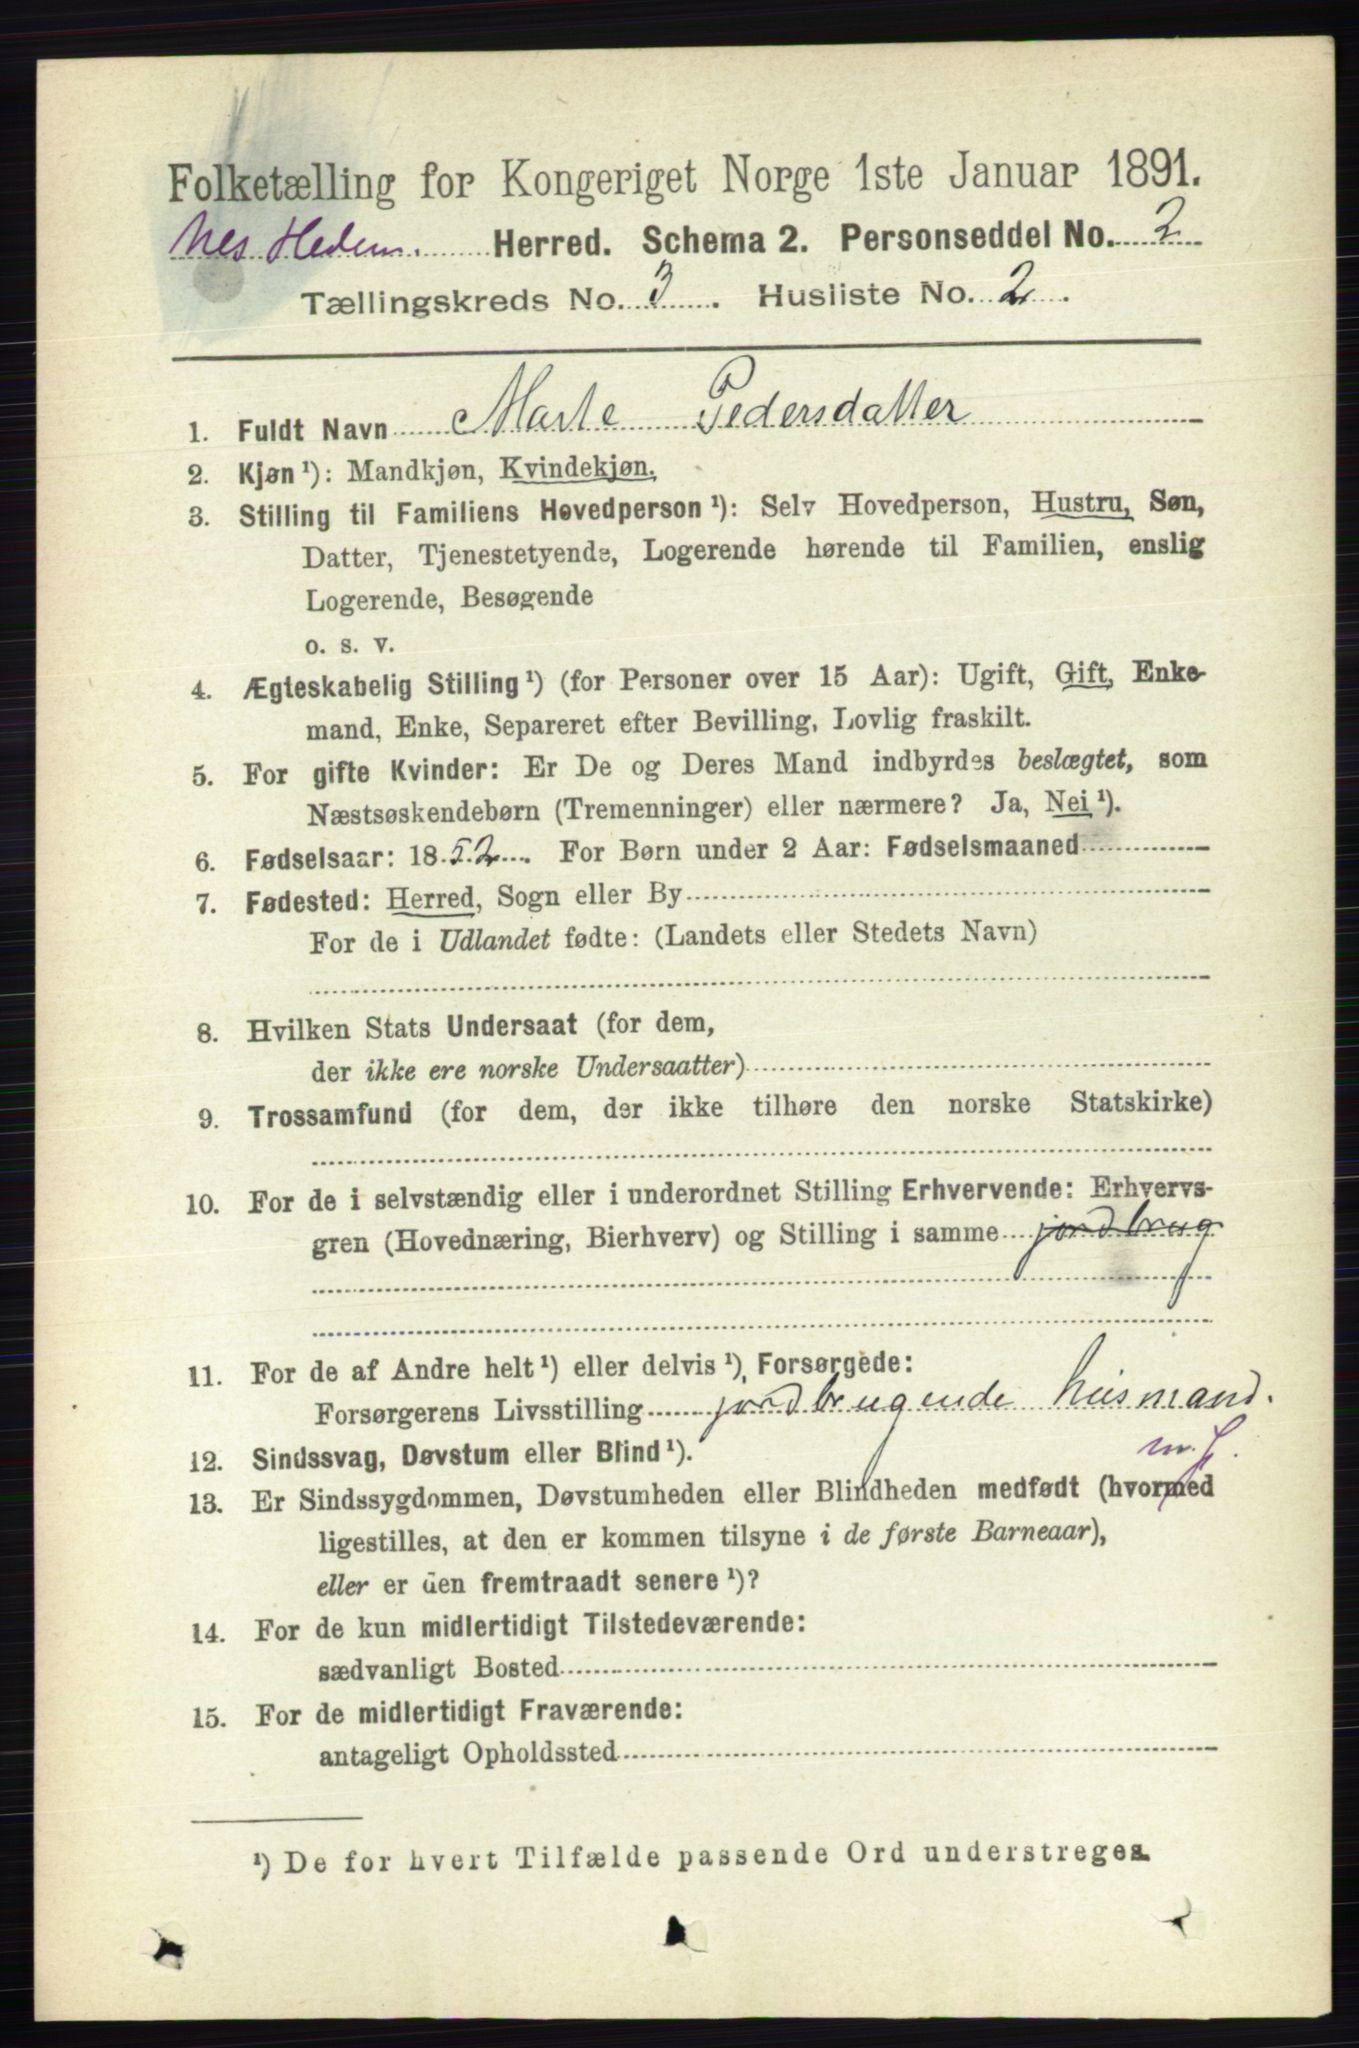 Folketælling for Kongeriget Norge 1ste Januar 1891.
Nes Hedem. Herred. Schema 2. Personseddel No. 2
Tællingskreds No. 3. Husliste No. 2.
1. Fuldt Navn Marte Pedersdatter
2. Kjøn ¹): Mandkjøn, Kvindekjøn.
3. Stilling til Familiens Hovedperson ¹): Selv Hovedperson, Hustru, Søn,
Datter, Tjenestetyende, Logerende hørende til Familien, enslig
Logerende, Besøgende
o. s. v.
4. Ægteskabelig Stilling ¹) (for Personer over 15 Aar): Ugift, Gift, Enke-
mand, Enke, Separeret efter Bevilling, Lovlig fraskilt.
5. For gifte Kvinder: Er De og Deres Mand indbyrdes beslægtet, som
Næstsøskendebørn (Tremenninger) eller nærmere? Ja, Nei ¹).
6. Fødselsaar: 1852. For Børn under 2 Aar: Fødselsmaaned
7. Fødested: Herred, Sogn eller By
For de i Udlandet fødte: (Landets eller Stedets Navn)
8. Hvilken Stats Undersaat (for dem,
der ikke ere norske Undersaatter)
9. Trossamfund (for dem, der ikke tilhøre den norske Statskirke)
10. For de i selvstændig eller i underordnet Stilling Erhvervende: Erhvervs-
gren (Hovednæring, Bierhverv) og Stilling i samme jordbrug
11. For de af Andre helt ¹) eller delvis ¹), Forsørgede:
Forsørgerens Livsstilling jordbrugende husmand.
m. j.
12. Sindssvag, Døvstum eller Blind ¹).
13. Er Sindssygdommen, Døvstumheden eller Blindheden medfødt (hvormed
ligestilles, at den er kommen tilsyne i de første Barneaar),
eller er den fremtraadt senere ¹)?
14. For de kun midlertidigt Tilstedeværende:
sædvanligt Bosted
15. For de midlertidigt Fraværende:
antageligt Opholdssted
¹) De for hvert Tilfælde passende Ord understreges.